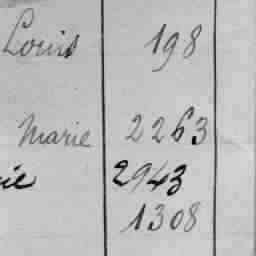 Louis 198
Marie 2263
ie 2943
1308